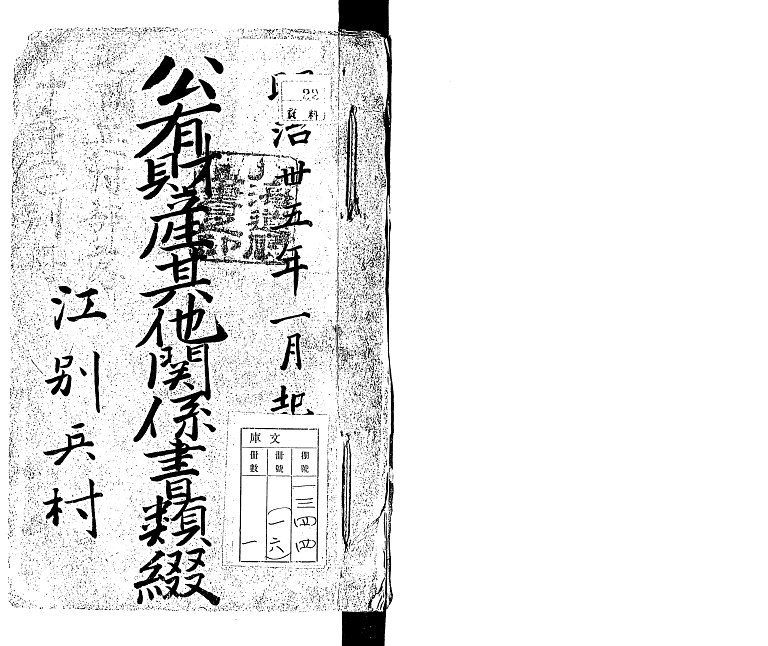 明治卅五年一月起
公有財産其他関係書類綴
江別兵村
22
資料
文庫
冊號
冊數
一三四四
(一六)
一